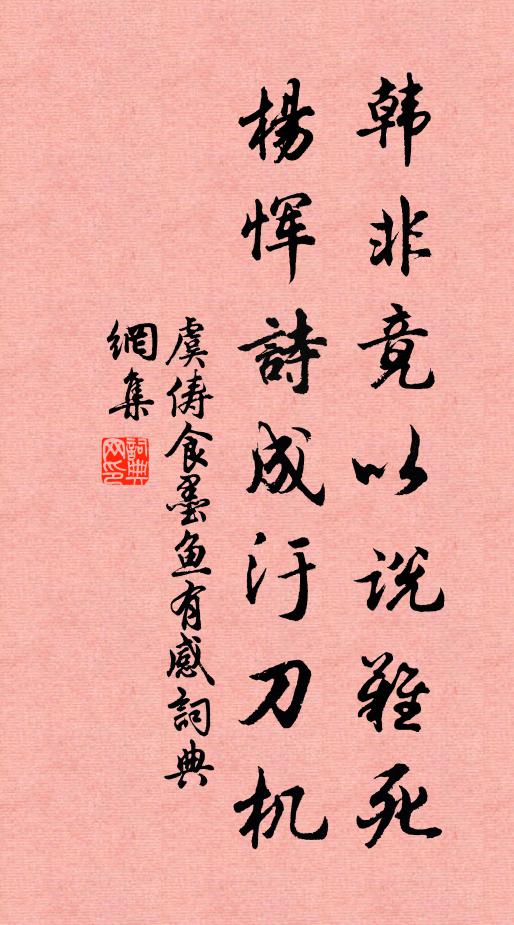 韩非竟以说難死
楊恽詩成汙刀机
虞俦食墨魚有感詞典
網集
詞典
网印